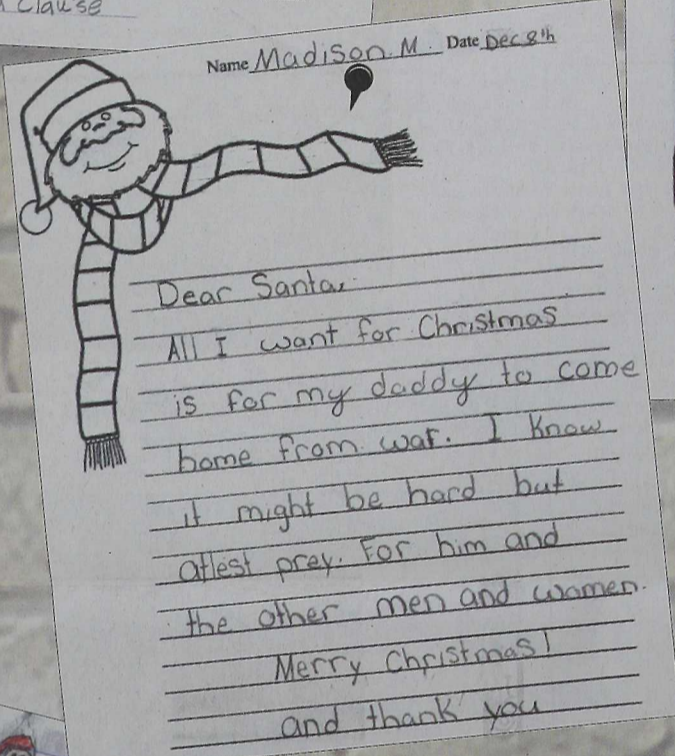 Clause
Name Madison M. Date Dec 8th
Dear Santa,
All I want for Christmas
is for my daddy to come
home from war. I know
it might be hard but
atlest prey. For him and
the other men and women.
Merry Christmas!
and thank you